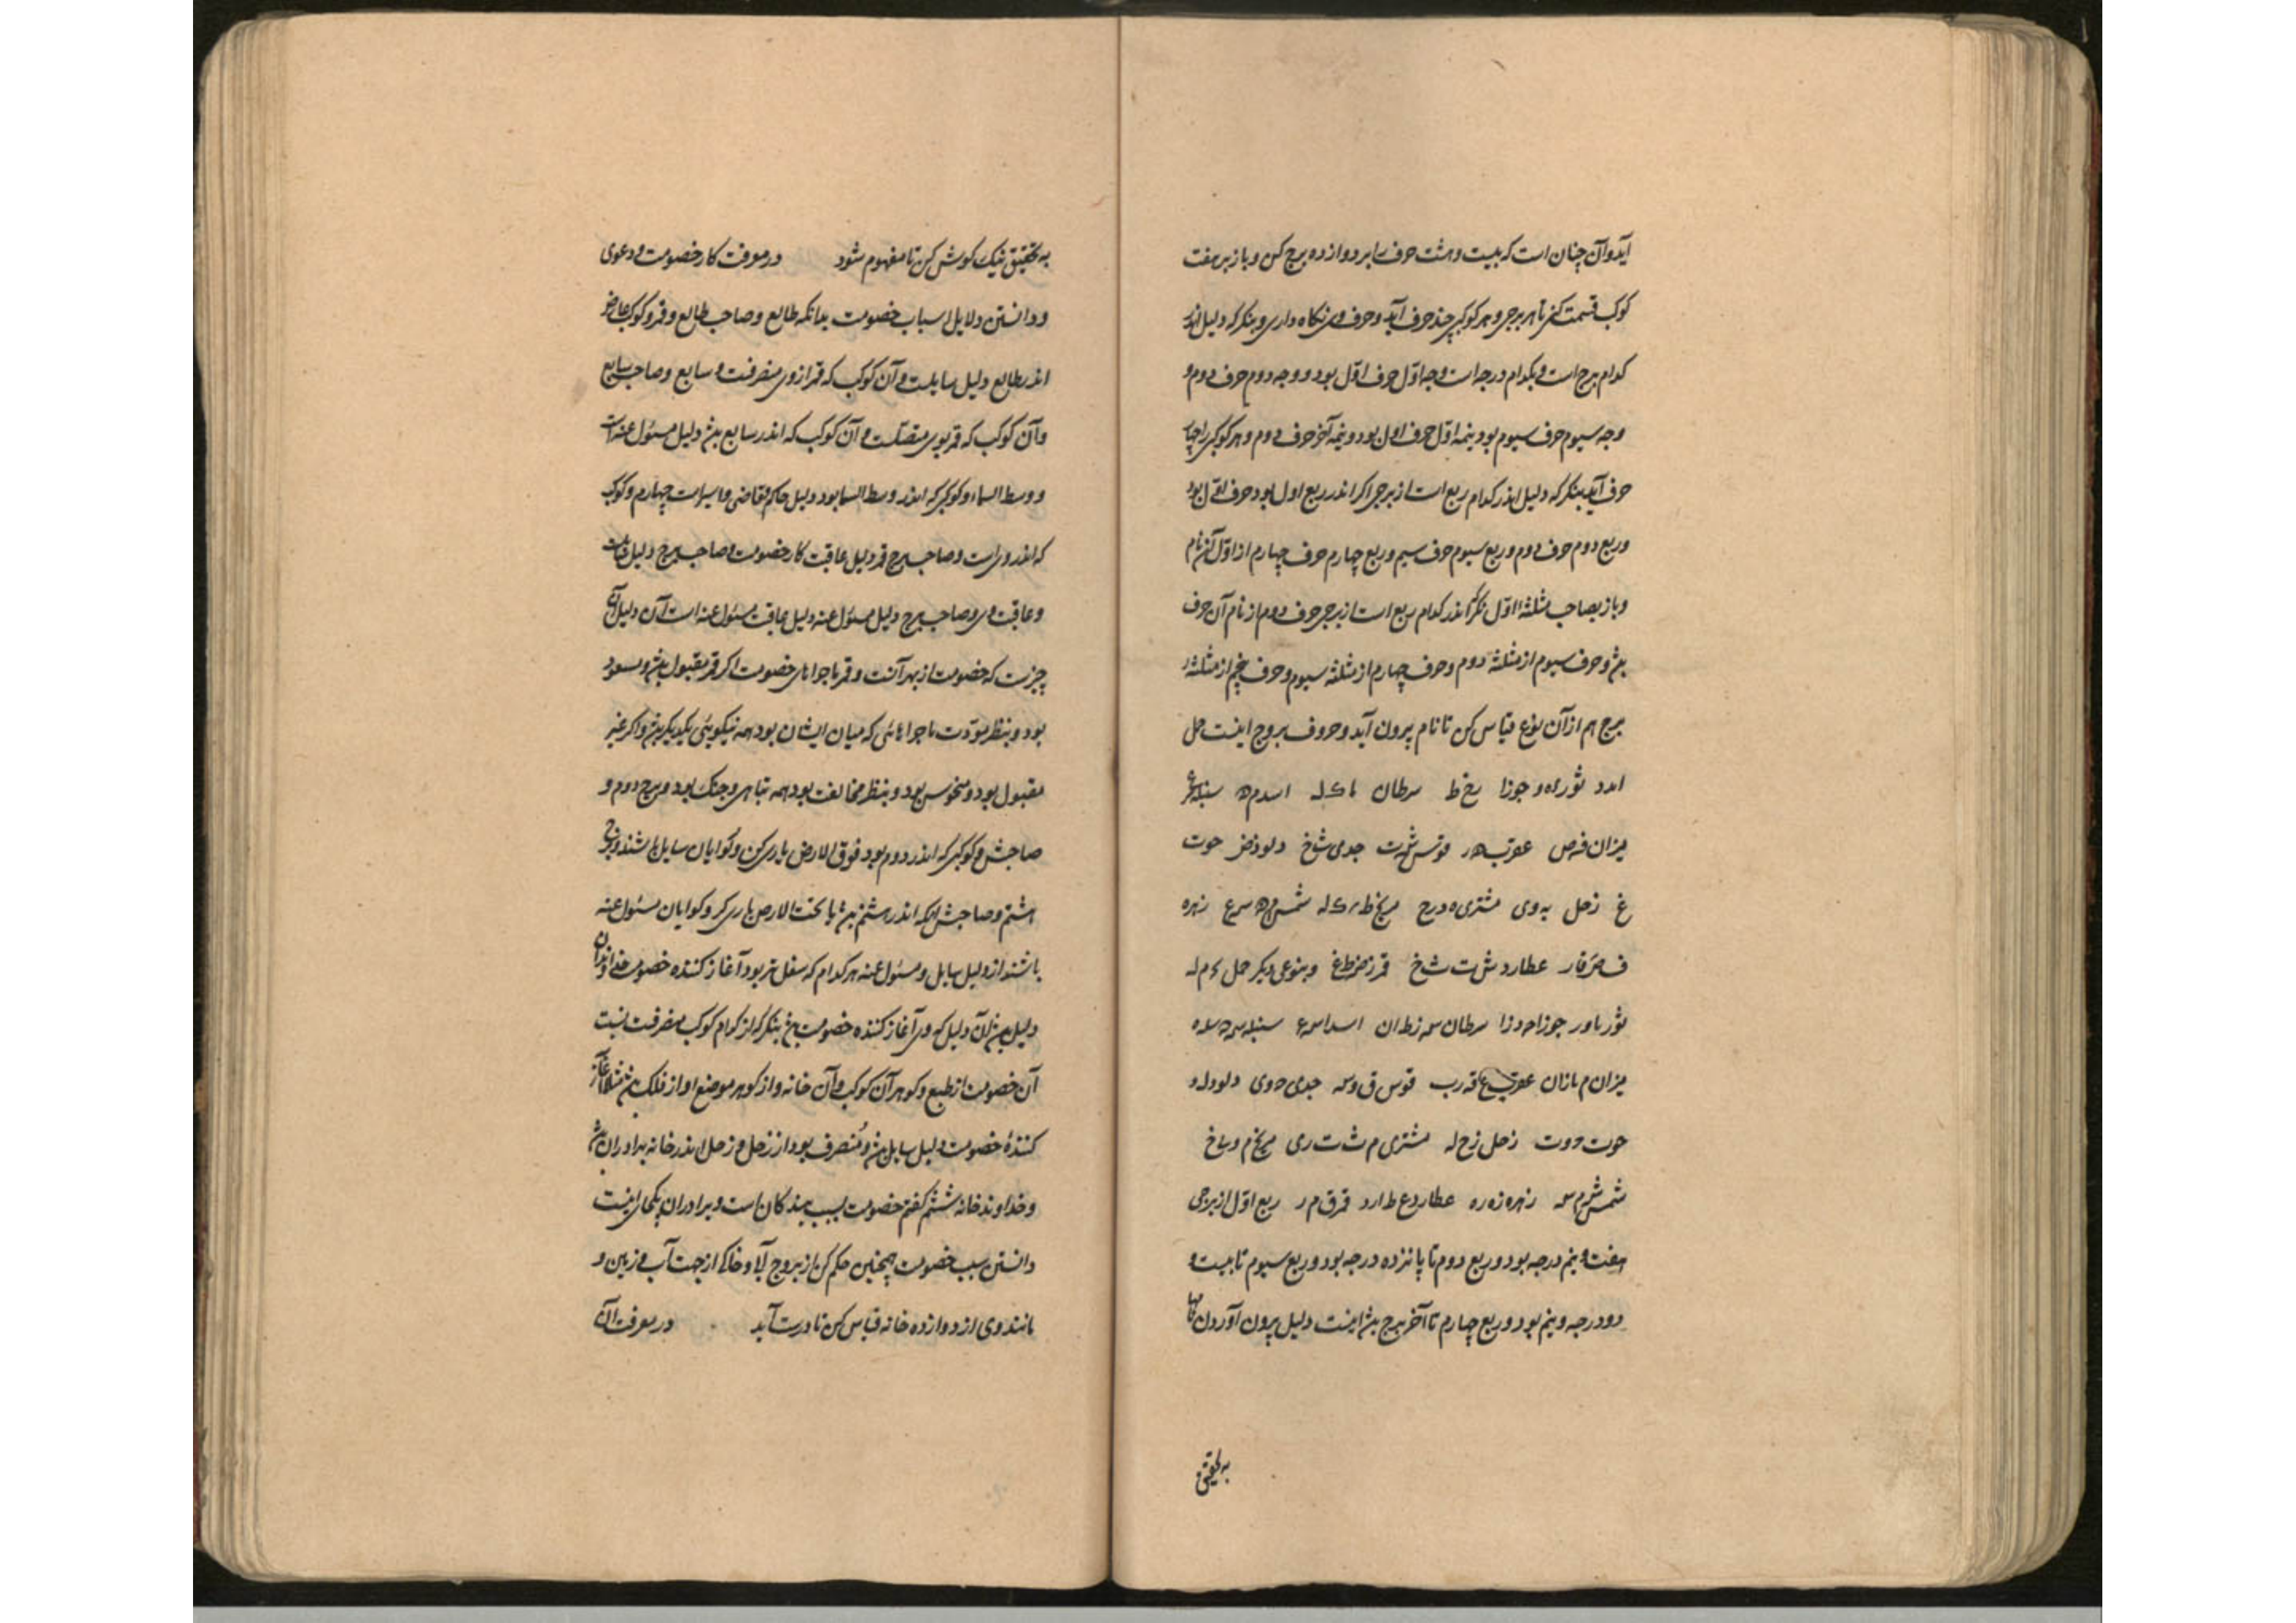 آیدوآن چنان است که بیست و هشت حرف را بر دوازده برج کن و باز بر هفت
کوکب قسمت کنی تا هر برجی و هر کوکبی چند حرف آید و حرف وی نکاه داری و بنکر که دلیل اندر
کدام برج است و بکدام درجه است وجه اوّل حرف اوّل بود و وجه دوم حرف دوم و
وجه سیوم حرف سیوم بود و نیمه اوّل حرف اول بود و نیمه آخر حرف دوم و هر کوکبی را چهار
حرف آید بنکر که دلیل اندر کدام ربع است از برجی اکر اندر ربع اول بود حرف اوّل بود
و ربع دوم حرف دوم و ربع سیوم حرف سیم و ربع چهارم حرف چهارم از اوّل آن نام
و باز بصاحب مثلثهٔ اوّل نکر اندر کدام ربع است از برجی حرف دوم از نام آن حرف
بشد و حرف سیوم از مثلثهٔ دوم و حرف چهارم از مثلثه سیوم و حرف پنجم از مثلثهٔ
برج هم از آن نوع قیاس کن تا نام بیرون آید و حروف بروج اینست حمل
ا ب د ثور ه و جوزا ح ط سرطان ک ل اسد م ه سنبله
میزان ف ص عقرب ر قوس ش ت جدی ث خ دلو ذ ض حوت
غ زحل ب و ی مشتری ه د ح مریخ ط ک ل شمس م ه س ع زهره
ف ص ق ر عطارد ش ت ث خ قمر ذ ض ظ غ و بنوعی دیکر حمل ح م ل
ثور ث و ر جوزا ج و ز ا سرطان س ر ط ا ن اسد ا س سنبله
میزان م ی ز ا ن عقرب ع ق ر ب قوس ق و س جدی ج د ی دلو د ل و
حوت ح و ت زحل ز ح ل مشتری م ش ت ر ی مریخ م ر ی خ
شمس ش م س زهره ز ه ر ه عطارد ع ط ا ر د قمر ق م ر ربع اوّل از برجی
هفت و نیم درجه بود و ربع دوم تا پانزده درجه بود و ربع سیوم تا بیست و
دو درجه و نیم بود و ربع چهارم تا آخر برج بشد اینست دلیل بیرون آوردن نامها
به تحقیق
به تحقیق نیک کوش کن تا مفهوم شود در معرفت کار خصومت و دعوی
و دانستن دلایل اسباب خصومت بدانکه طالع و صاحب طالع و قمر و کوکب
اندر طالع دلیل سایلست و آن کوکب که قمر از وی منصرفست و سابع و صاحب سابع
و آن کوکب که قمر بوی متصلست و آن کوکب که اندر سابع بشد دلیل مسئول عنه است
و وسط السماء و کوکبی که اندر وسط السما بود دلیل حاکم و قاضی و چهارم و کوکب
که اندر وی است و صاحب برج قمر دلیل عاقبت کار خصومت و صاحب برج دلیل
و عاقبت وی و صاحب برج دلیل مسئول عنه دلیل عاقبت مسئول عنه است آن دلیل آن
چیزست که خصومت از بهر آنست و قمر ماجراهای خصومت اکر قمر مقبول بشد و مسعود
بود و بنظر مودّت ماجراهائی که میان ایشان بود همه نیکوئی یکدیکر بشد و اکر غیر
مقبول بود و منحوس بود و بنظر مخالفت بود همه تباهی و جنک بود و برج دوم و
صاحبش و کوکبی که اندر دوم بود فوق الارض یاری کن و کوایان سایل باشند و برج
هشتم و صاحبش و آنکه اندر هشتم بشد یا تحت الارض یاری کر و کوایان مسئول عنه
باشند از دلیل سایل و مسئول عنه هر کدام که سفلی تر بود آغاز کننده خصومت
دلیل بشد آن دلیل که وی آغاز کننده خصومت بشد بنکر که از کدام کوکب منصرفست
آن خصومت از طبع و کوهر آن کوکب و آن خانه و از کوهر موضع او از فلک بشد مثلا آغاز
کنندهٔ خصومت دلیل سایل بشد و منصرف بود از زحل و زحل اندر خانه برادران بشد
و خداوند خانه ششم کفتم خصومت بسبب بندکان است و برادران اینست
دانستن سبب خصومت همچنین حکم کن از بروج آبی و خاکی از جهت آب و زمین و
مانند وی از دوازده خانه قیاس کن تا درست آید در معرفت آن